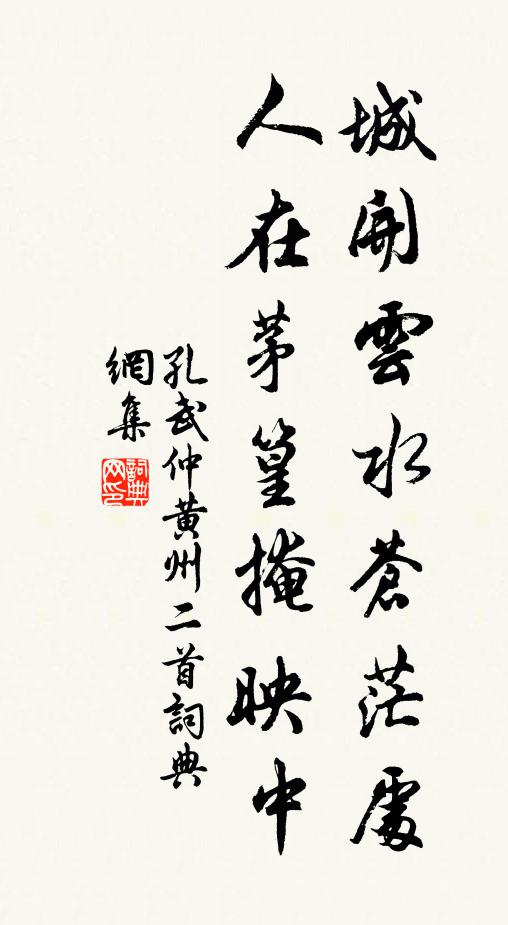 城開雲水蒼茫處
人在茅篁掩映中
孔武仲黄州二首詞典
網集
詞典网印